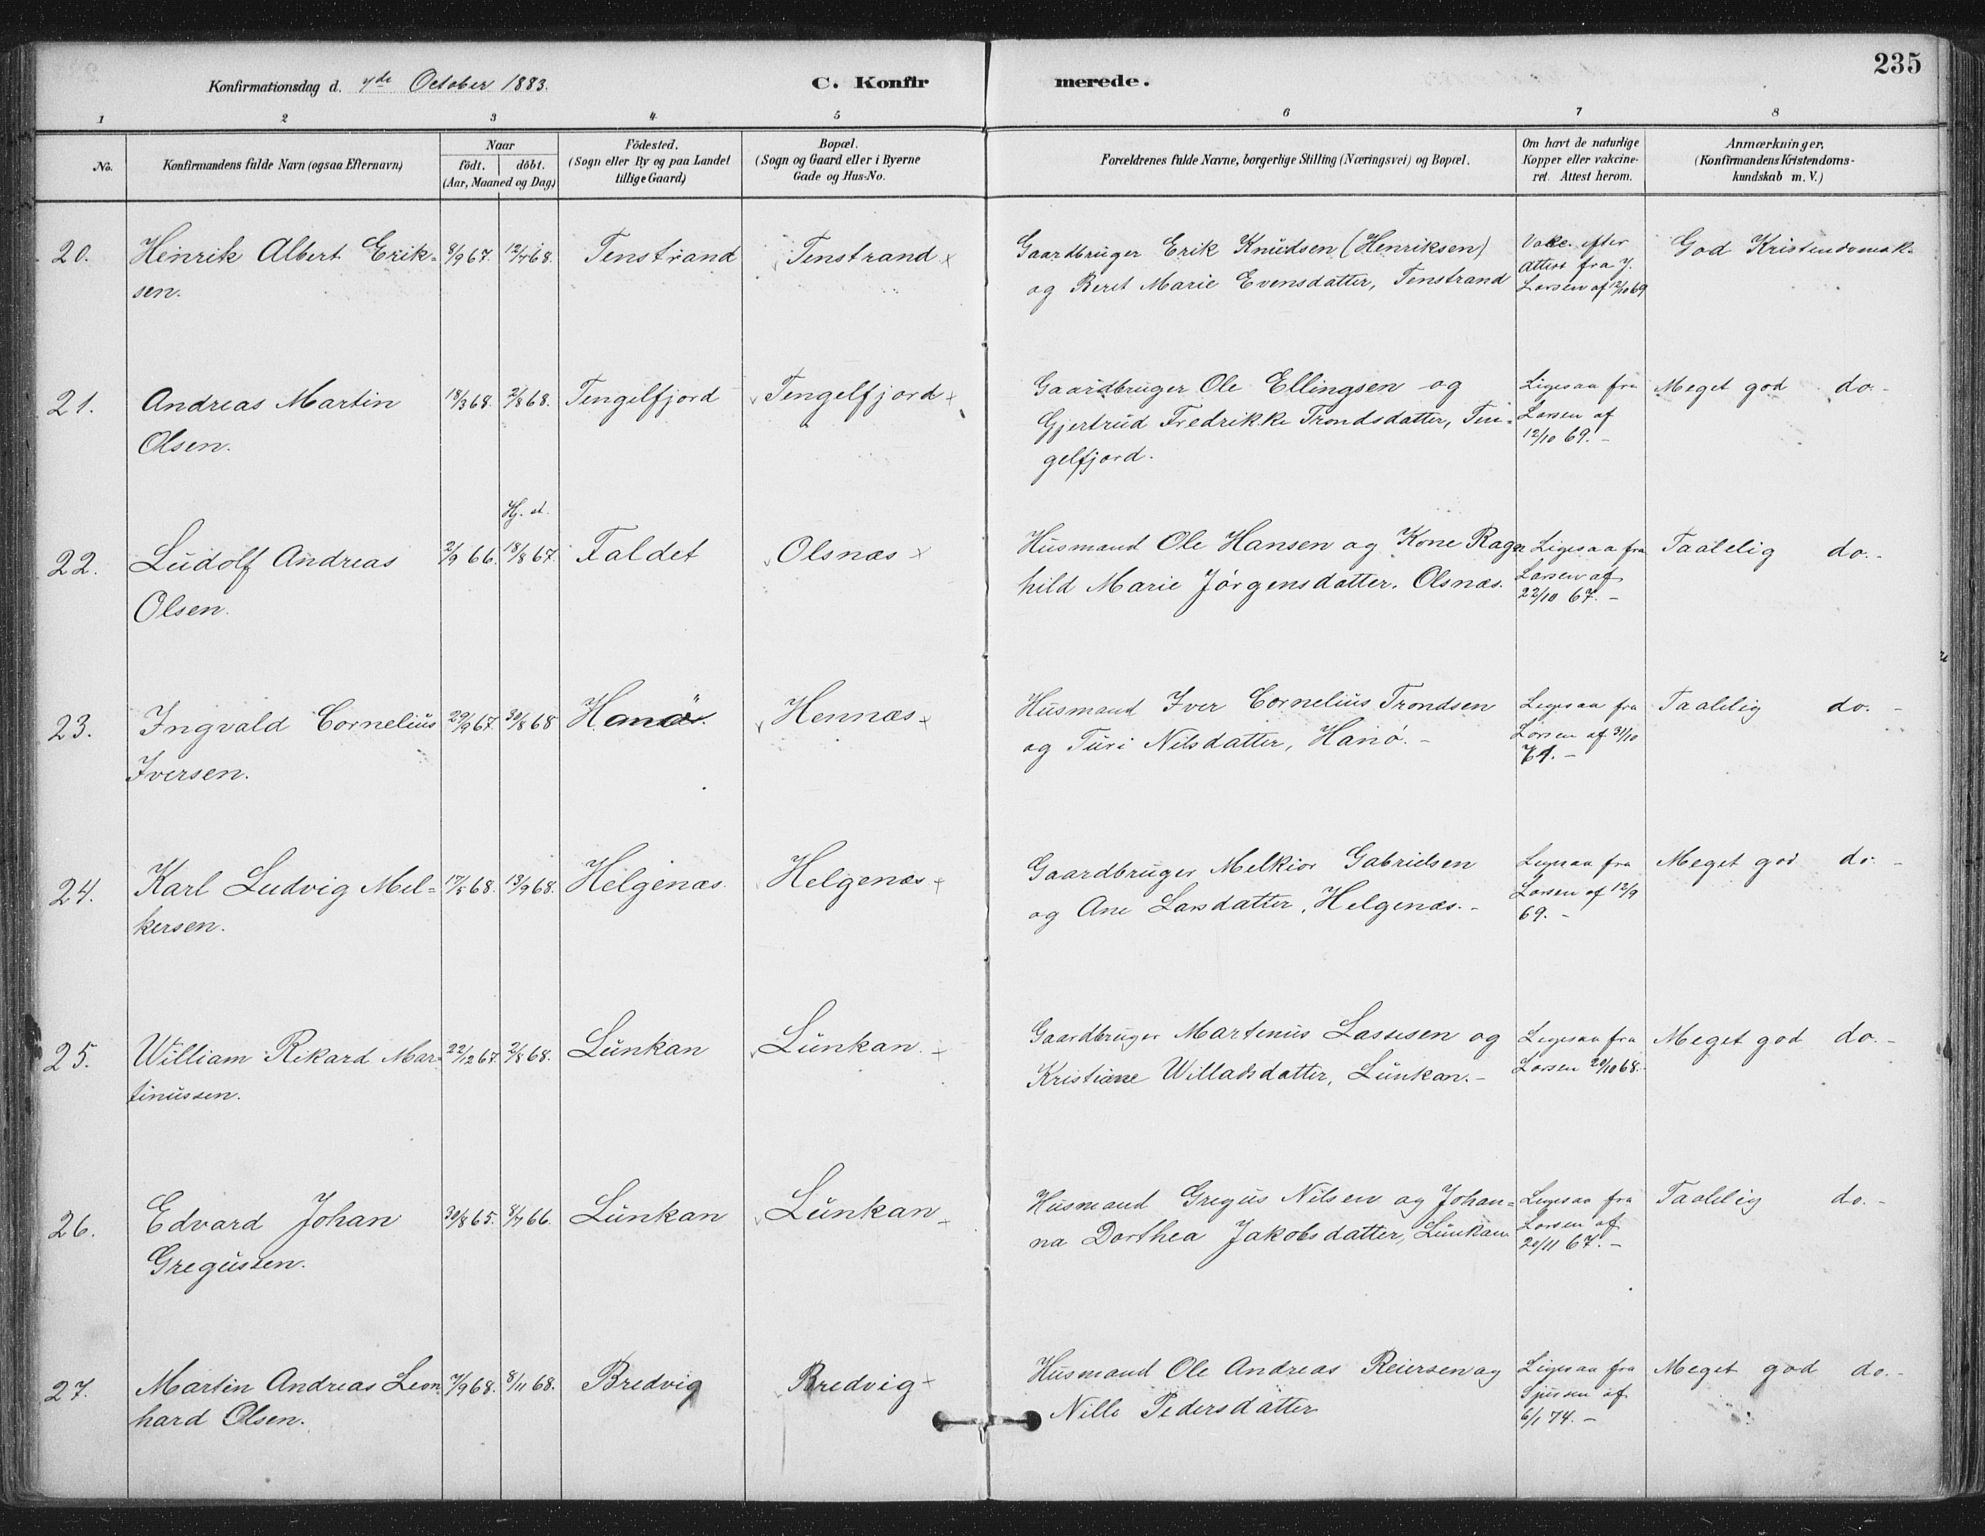 235
Konfirmationsdag d. 7de October 1883.
C. Konfirmerede.
1 2 3 4 5 6 7 8
No.
Konfirmandens fulde Navn (ogsaa Efternavn)
Naar
födt. döbt.
(Aar, Maaned og Dag)
Födested.
(Sogn eller By og paa Landet
tillige Gaard)
Bopæl.
(Sogn og Gaard eller i Byerne
Gade og Hus-No.
Forældrenes fulde Navne, borgerlige Stilling (Næringsvei) og Bopæl.
Om havt de naturlige
Kopper eller vakcine-
ret. Attest herom.
Anmærkninger.
(Konfirmandens Kristendoms-
kundskab m. V.)
20. Henrik Albert Erik- 8/9 67. 12/7 68. Tenstrand Tenstrand x
sen.
Gaardbruger Erik Knudsen (Henriksen)
og Beret Marie Evensdatter, Tenstrand
Vakc. efter
Attest fra J.
Larsen af 12/10 69
God Kristendomsk.
21. Andreas Martin 18/3 68. 2/8 68. Tengelfjord Tengelfjord x
Olsen.
Gaardbruger Ole Ellingsen og
Gjertrud Fredrikke Trondsdatter, Ten-
gelfjord.
Ligesaa fra
Larsen af
12/10 69. -
Meget god do.-
Hj. d.
22. Ludolf Andreas 2/9 66. 18/8 67. Faldet Olsnæs x
Olsen.
Husmand Ole Hansen og Kone Ragn
hild Marie Jørgensdatter. Olsnæs.
Ligesaa fra
Larsen af
22/10 67. -
Taalelig do.-
23. Ingvald Cornelius 29/9 67. 30/8 68 Hanö. Hennæs x
Iversen.
Husmand Iver Cornelius Trondsen
og Turi Nilsdatter, Hanø. -
Ligesaa fra
Larsen af 31/10
71. -
Taalelig do. -
24. Karl Ludvig Mel- 17/5 68. 13/9 68. Helgenæs. Helgenæs x
kersen.
Gaardbruger Melkior Gabrielsen
og Ane Larsdatter, Helgenæs. -
Ligesaa fra
Larsen af 12/9
69. -
Meget god do. -
25. William Rikard Mar- 22/12 67 2/8 68. Lunkan Lunkan. x
tinussen.
Gaardbruger Martenus Lassesen og
Kristiane Willadsdatter, Lunkan. -
Ligesaa fra
Larsen 20/10 68.
Meget god do. -
26. Edvard Johan 30/8 65. 8/7 66. Lunkan Lunkan
Gregussen.
Husmand Gregus Nilsen og Johan-
na Dorthea Jakobsdatter, Lunkan
Ligesaa fra
Larsen af
20/11 67. -
Taalelig do. -
27. Martin Andreas Leon 7/9 68. 8/11 68. Bredvig Bredvig x
hard Olsen.
Husmand Ole Andreas Reiersen og
Nille Pedersdatter
Ligesaa fra
af
6/1 74. -
Meget god do. -